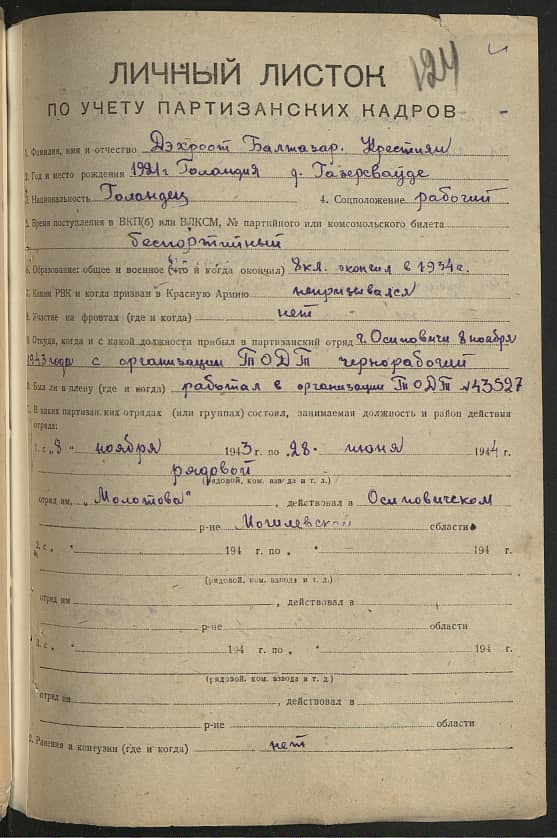 124
ЛИЧНЫЙ ЛИСТОК
ПО УЧЕТУ ПАРТИЗАНСКИХ КАДРОВ
1. Фамилия, имя и отчество Дэхроот Балтазар. Крестиян
2. Год и место рождения 1921 г Голандия д. Газерсвауде
3. Национальность Голандец 4. Соцположение рабочий
5. Время поступления в ВКП(б) или ВЛКСМ, № партийного или комсомольского билета
беспортийный
6. Образование: общее и военное (что и когда окончил) 8 кл. окончил в 1934 г.
7. Каким РВК и когда призван в Красную Армию непризывался
8. Участие на фронтах (где и когда) нет
9. Откуда, когда и с какой должности прибыл в партизанский отряд г. Осиповичи 8 ноября
1943 года с организации ТОДТ чернорабочий
Был ли в плену (где и когда) работал в организации ТОДТ № 43527
В каких партизанских отрядах (или группах) состоял, занимаемая должность и район действия
отряда:
1. с „8 " ноября 1943 г. по „28 " июня 1944 г.
рядовой
(рядовой, ком. взвода и т. д.)
отряд им. „Молотова" , действовал в Осиповичском
р-не Могилевской области
2. с „ " 194 г. по „ " 194 г.
(рядовой, ком. взвода и т. д.)
отряд им , действовал в
р-не области
3. с „ " 194 г. по „ " 194 г.
(рядовой, ком. взвода и т. д.)
отряд им. , действовал в
р-не области
Ранения и контузии (где и когда) нет